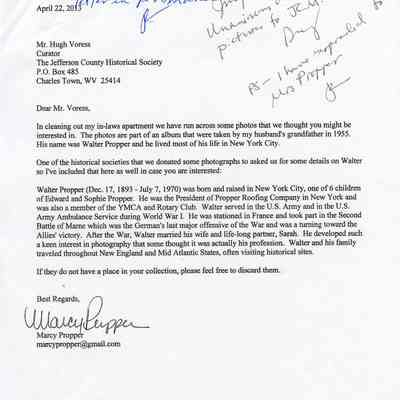 April 22, 2013
pictures to
PS - I have responded to
Ms Propper
Mr. Hugh Voress
Curator
The Jefferson County Historical Society
P.O. Box 485
Charles Town, WV 25414
Dear Mr. Voress,
In cleaning out my in-laws apartment we have run across some photos that we thought you might be
interested in. The photos are part of an album that were taken by my husband's grandfather in 1955.
His name was Walter Propper and he lived most of his life in New York City.
One of the historical societies that we donated some photographs to asked us for some details on Walter
so I've included that here as well in case you are interested:
Walter Propper (Dec. 17, 1893 - July 7, 1970) was born and raised in New York City, one of 6 children
of Edward and Sophie Propper. He was the President of Propper Roofing Company in New York and
was also a member of the YMCA and Rotary Club. Walter served in the U.S. Army and in the U.S.
Army Ambulance Service during World War I. He was stationed in France and took part in the Second
Battle of Marne which was the German's last major offensive of the War and was a turning toward the
Allies' victory. After the War, Walter married his wife and life-long partner, Sarah. He developed such
a keen interest in photography that some thought it was actually his profession. Walter and his family
traveled throughout New England and Mid Atlantic States, often visiting historical sites.
If they do not have a place in your collection, please feel free to discard them.
Best Regards,
Marcy Propper
Marcy Propper
marcypropper@gmail.com